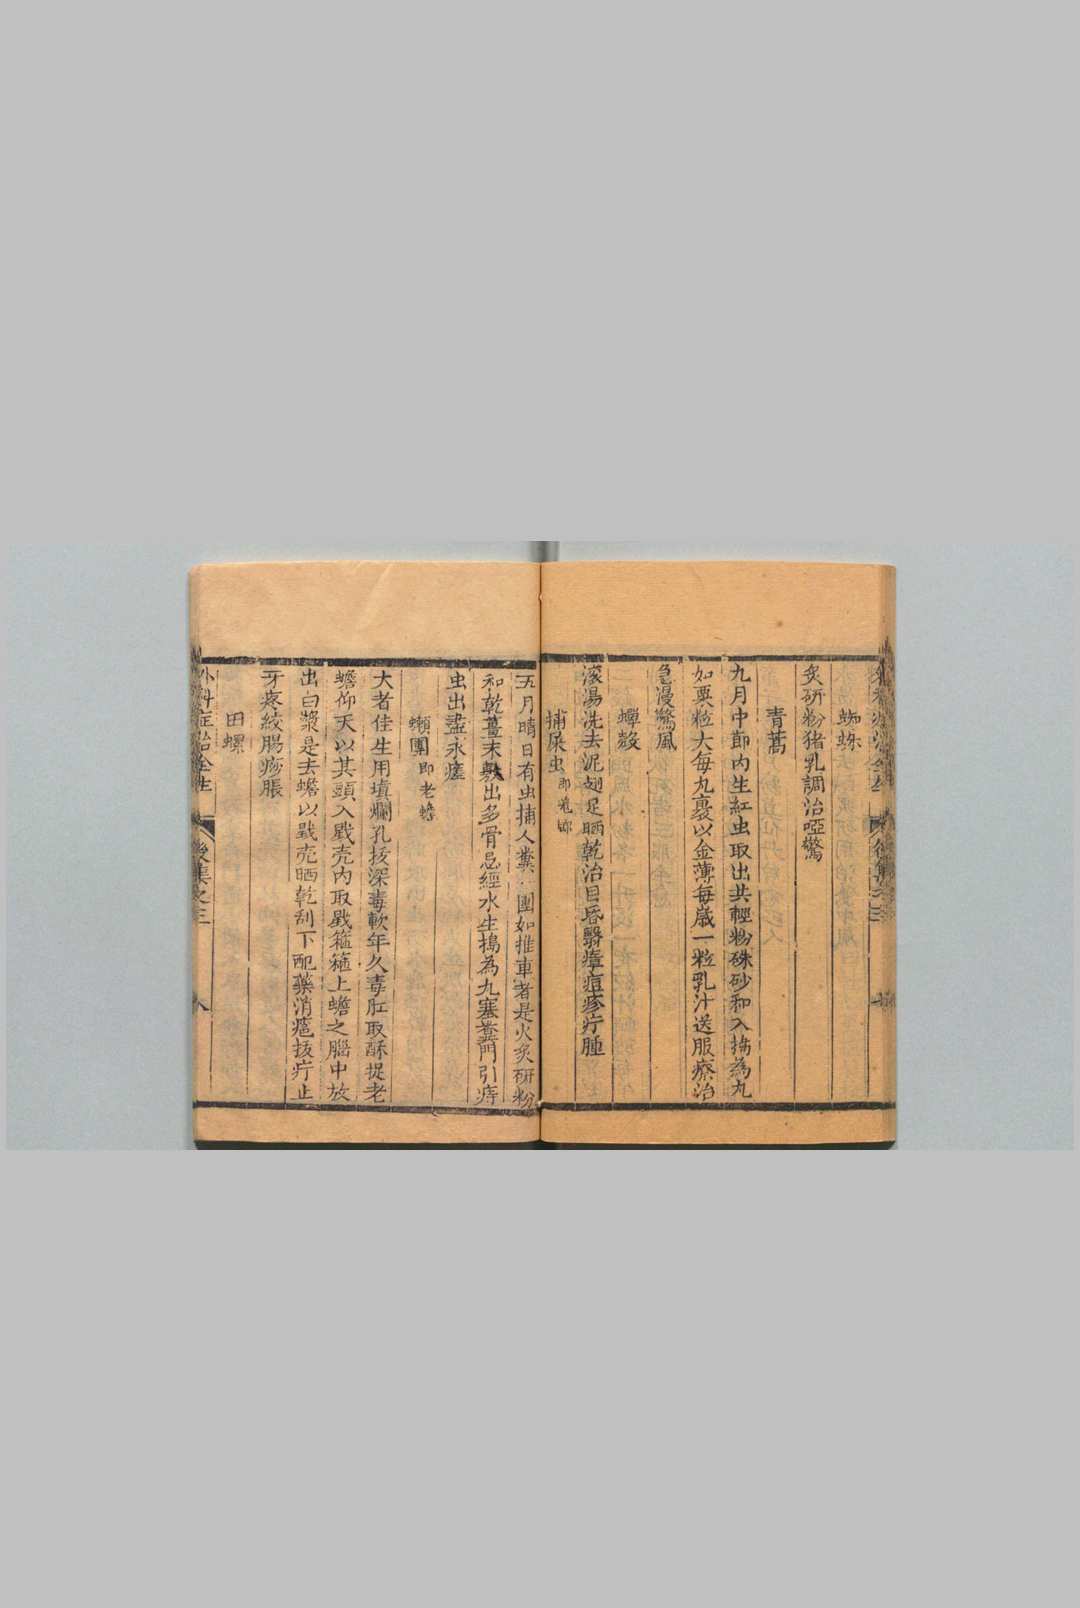 蜘蛛
炙研粉猪乳調治啞驚
青蒿
九月中節内生紅虫取出共輕粉硃砂和入搗為丸
如粟粒大每丸裹以金薄每嵗一粒乳汁送服療治
急慢驚風
蟬殼
滾湯洗去泥翅足晒乾治目昏翳瘴痘疹疔腫
捕屎虫
五月晴日有虫捕人糞一團如推車者是火炙研粉
和乾薑末敷出多骨忌經水生搗為九塞糞門引痔
虫出盡永瘥
癩團即老蟾
大者佳生用填爛孔拔深毒軟年久毒肛取酥捉老
蟾仰天以其頭入戥壳内取戥箍箍上蟾之腦中放
出白漿是去蟾以戥壳晒乾刮下配藥消疽拔疔止
牙疼絞腸痧脹
田螺
外科症治全生
後集之三
八